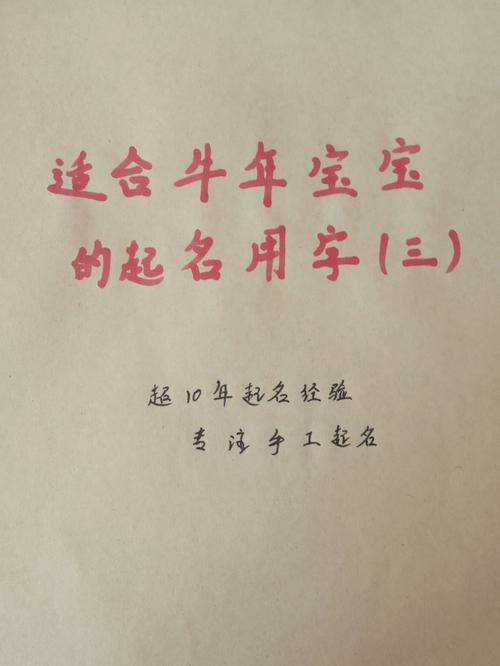 适合牛年宝宝
的起名用字(三)
超10年起名经验
专注手工起名